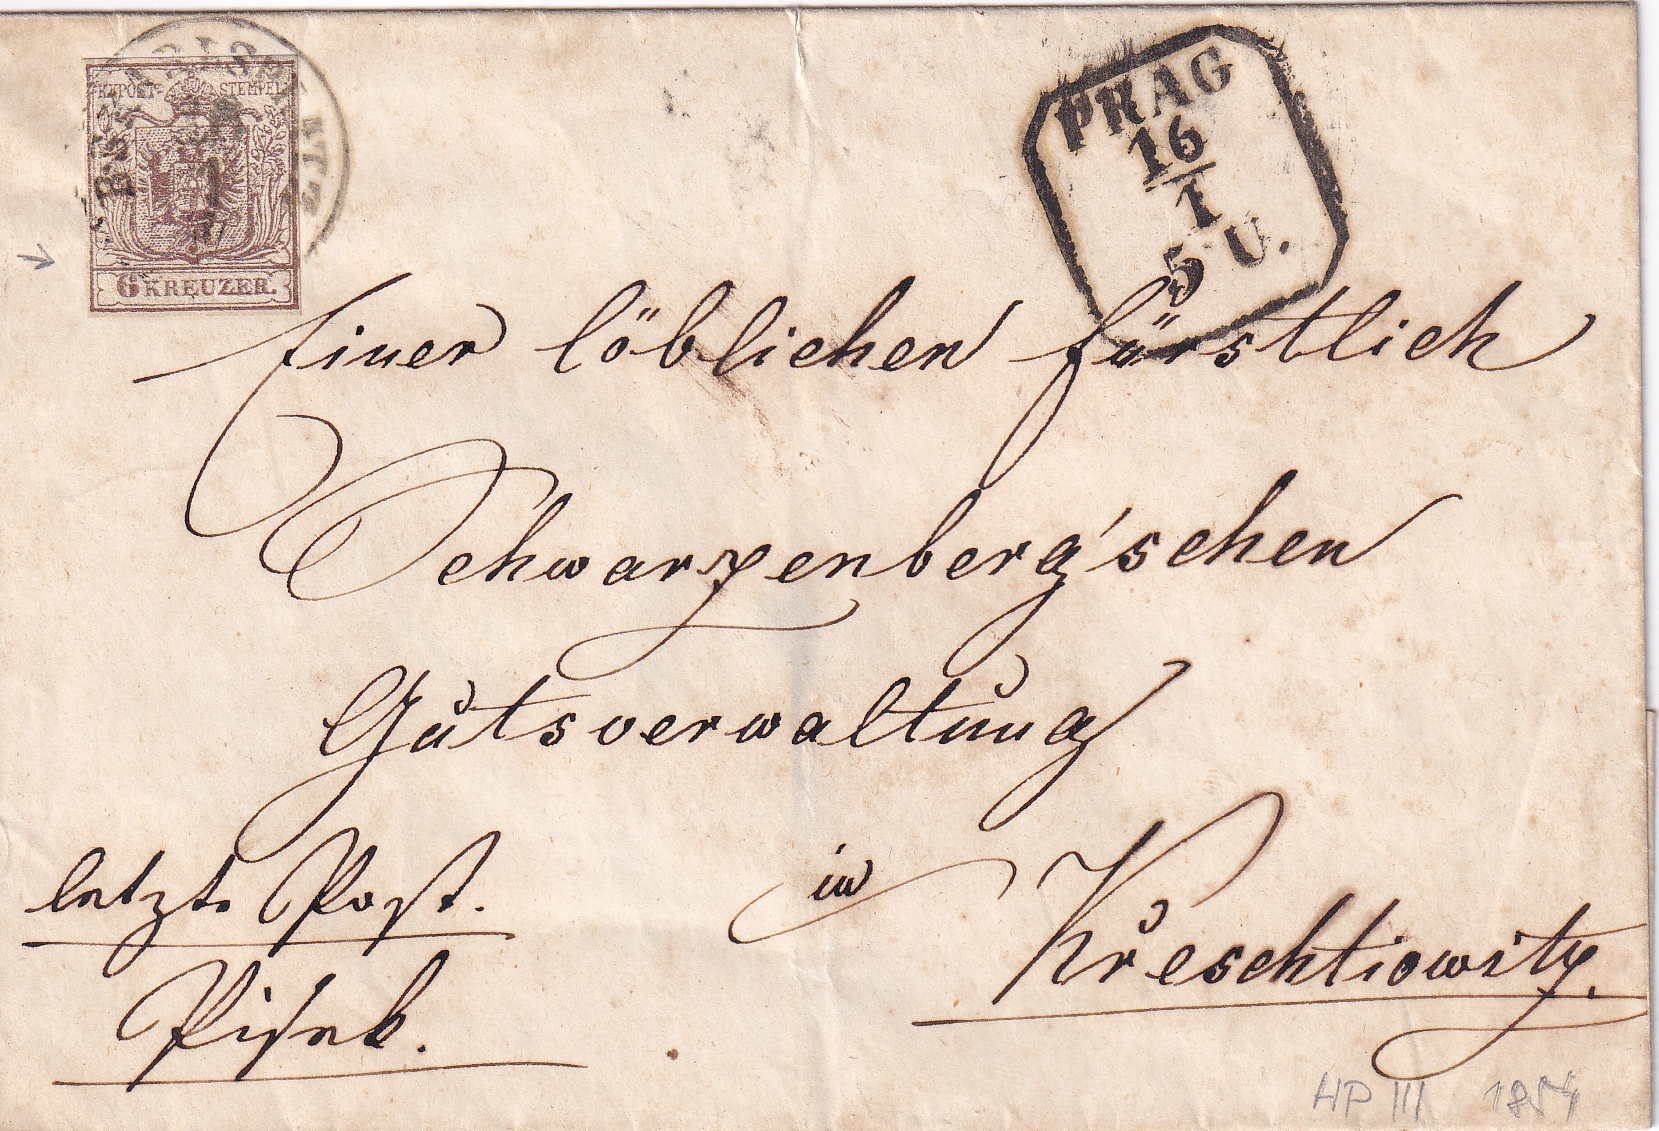 KK POST-STEMPEL
6 KREUZER.
PRAG
16
1
5 U.
Einer löblichen fürstlich
Schwarzenberg'schen
Gutsverwaltung
letzte Post.
Pisek.
in
Křeschtiowitz.
HP III 1854